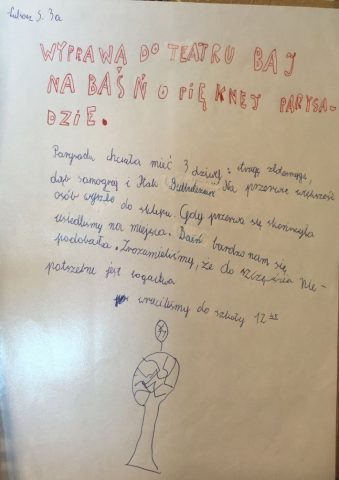 Łukasz S. 3a
WYPRAWA DO TEATRU BAJ
NA BAŚŃ O PIĘKNEJ PARYSA-
DZIE.
Parysada chciała mieć 3 dziwy: strugę złotą,
dąb samograj i Ptak Bulbulezar Na przerwie większość
osób wyszło do sklepu. Gdy przerwa się skończyła
usiedliśmy na miejsca. Baśń bardzo nam się
podobała. Zrozumieliśmy, że do szczęścia nie-
potrzebne jest bogactwo
wróciliśmy do szkoły 12